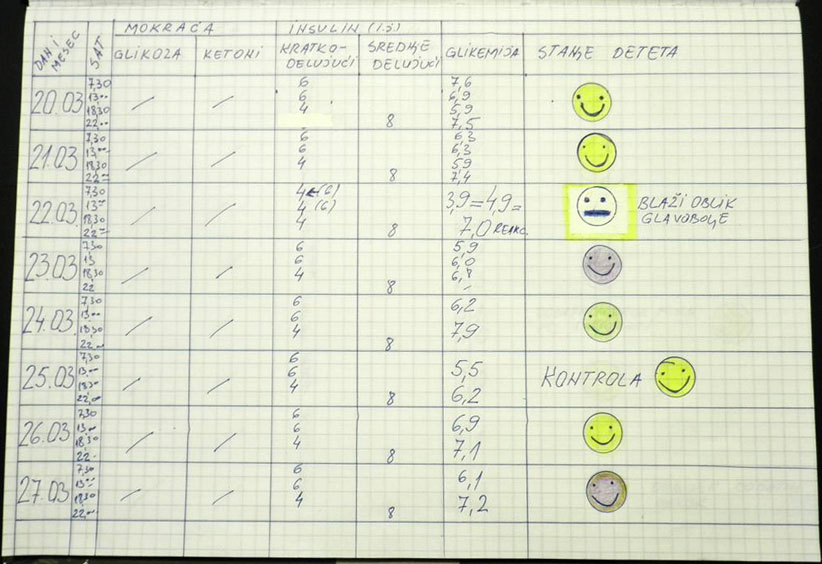 DANI MESEC SAT MOKRAĆA INSULIN (i.j.) GLIKEMIJA STANJE DETETA
GLIKOZA KETONI KRATKO-DELUJUĆI SREDNJE DELUJUĆI
20.03 7,30 / / 6 7,6
13 00 6 6,9
18,30 4 5,9
22,00 8 7,5
21.03 7,30 / / 6 6,3
13,00 6 6,3
18,30 4 5,9
22 00 8 7,4
22.03 7,30 / / 4←(6) 3,9=4,9=
13 00 4 (6) 7,0 REAKC. BLAŽI OBLIK
18,30 4 GLAVOBOLJE
22 00 8
23.03 7,30 / / 6 5,9
13 6 6,0
18,30 4 6,8
22 8 -
24.03 7,30 / / 6 6,2
13 00 6 7,9
18,30 4
22,00 8
25.03 7,30 / / 6 5,5 KONTROLA
13 00 6 6,2
18,30 4
22,00 8
26.03 7,30 / / 6 6,9
13 00 6 7,1
18,30 4
22 8
27.03 7,30 / / 6 6,1
13 00 6 7,2
18,30 4
22,00 8